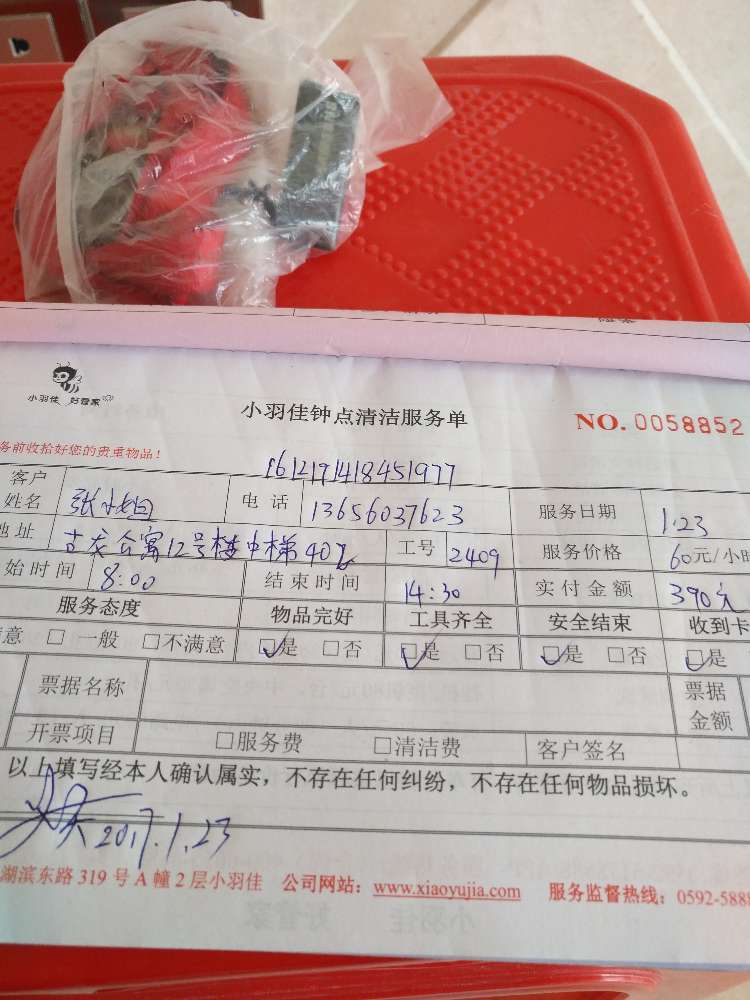 小羽佳 好管家
小羽佳钟点清洁服务单
NO. 0058852
务前收拾好您的贵重物品！
1612191418451977
客户姓名 张小姐 电话 13656037623 服务日期 1.23
地址 古龙公寓12号楼中梯40 工号 2409 服务价格 60元/小时
始时间 8:00 结束时间 14:30 实付金额 390元
服务态度 物品完好 工具齐全 安全结束 收到卡
意 □一般 □不满意 □是 □否 □是 □否 □是 □否 □是
票据名称 票据金额
开票项目 □服务费 □清洁费 客户签名
以上填写经本人确认属实，不存在任何纠纷，不存在任何物品损坏。
2017.1.23
湖滨东路 319 号 A 幢 2 层小羽佳 公司网站：www.xiaoyujia.com 服务监督热线：0592-5888